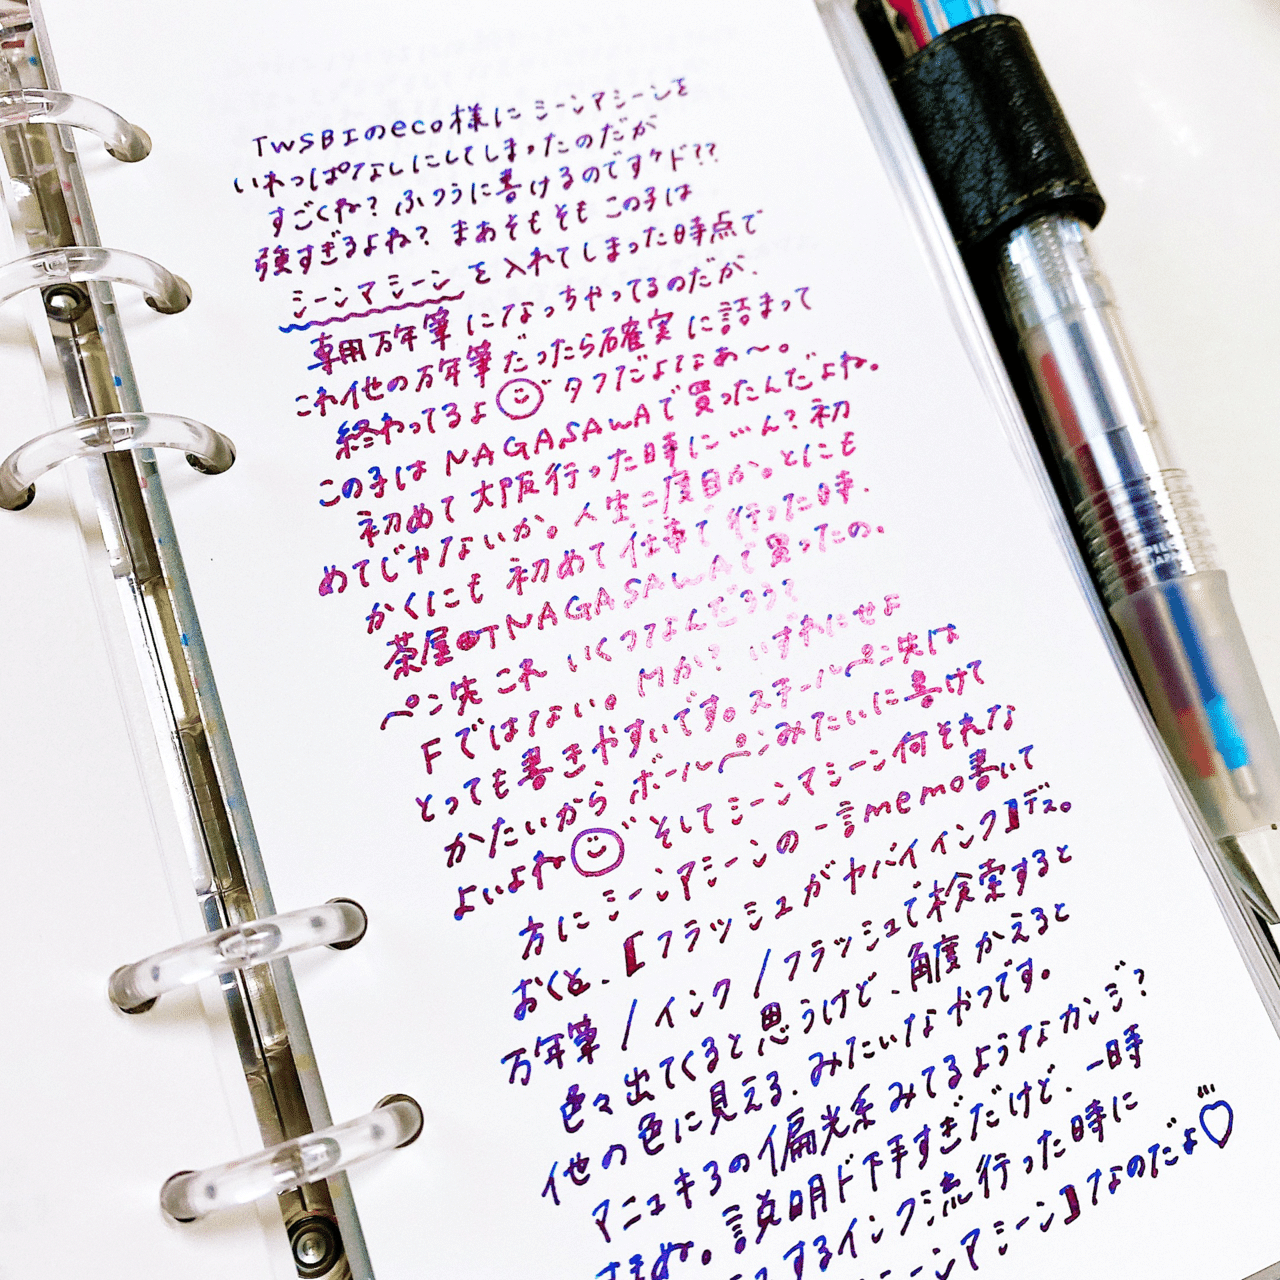 TWSBIのeco様にミーンマシーンを
いれっぱなしにしてしまったのだが
すごくね？ふつうに書けるのですケド??
強すぎるよね？まあそもそもこの子は
ミーンマシーンを入れてしまった時点で
専用万年筆になっちゃってるのだが、
これ他の万年筆だったら確実に詰まって
終わってるよ タフだよなぁ〜。
この子はNAGASAWAで買ったんだよね。
初めて大阪行った時に…ん？初
めてじゃないか。人生二度目か。とにも
かくにも初めて仕事で行った時、
茶屋町NAGASAWAで買ったの。
ペン先これいくつなんだろう？
Fではない。Mか？いずれにせよ
とっても書きやすいです。スチールペン先は
かたいからボールペンみたいに書けて
よいよね そしてミーンマシーン何それな
方にミーンマシーンの一言memo書いて
おくと、【フラッシュがヤバイインク】デス。
万年筆/インク/フラッシュで検索すると
色々出てくると思うけど、角度かえると
他の色に見える、みたいなやつです。
マニュキろの偏光系みてるようなカンジ？
すきぬ。説明ド下手すぎだけど、一時
するインク流行った時に
ーンマシーン】なのだよ♡